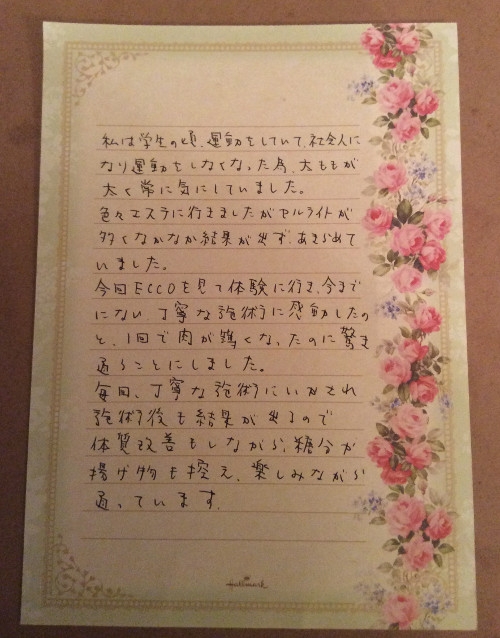 私は学生の頃、運動をしていて、社会人に
なり運動をしなくなった為、太ももが
太く常に気にしていました。
色々エステに行きましたがセルライトが
多くなかなか結果が出ず、あきらめて
いました。
今回ECCOを見て体験に行き、今まで
にない、丁寧な施術に感動したの
と、1回で肉が なったのに驚き
通うことにしました。
毎回、丁寧な施術に
施術後も結果が出るので
体質改善もしながら、糖分や
揚げ物も控え、楽しみながら
通っています。
Hallmark